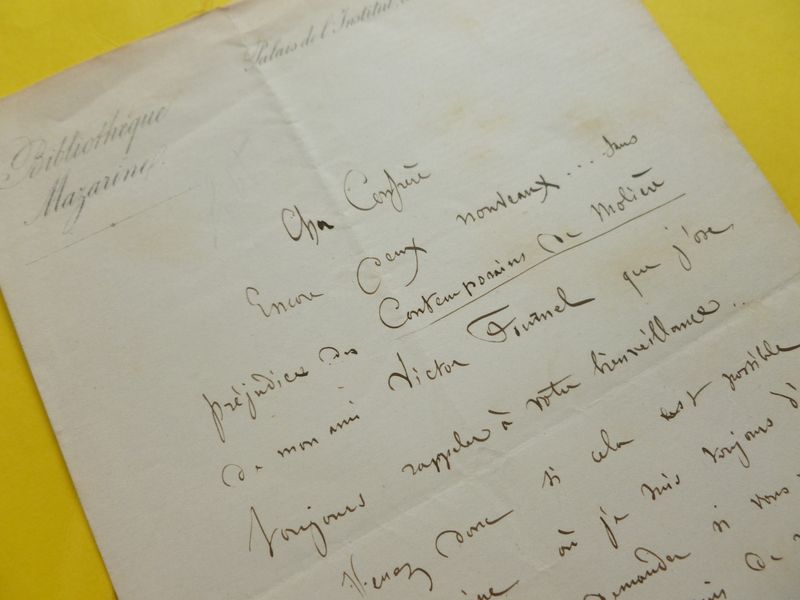 Palais de l'Institut,
Bibliothèque
Mazarine
Cher Confrère
Encore deux nouveaux... sans
préjudice des Contemporains de Molière
de mon ami Victor Fournel que j'ose
toujours rappeler à votre bienveillance...
Venez donc si cela est possible
où je suis toujours d'
demander si vous
de